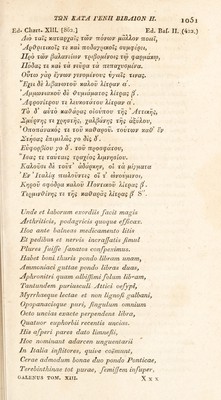 ΤΩΝ ΚΑΤΑ ΓΕΝΗ ΒΙΒΛΙΟΝ Π. 1051
Ed. Chart. XIII. (862.) Ed. Baf. II. (412.)
Διὸ ταῖς καταρχαῖς τῶν πόνων μᾶλλον ποιεῖ,
Ἀρθριτικοῖς τε καὶ ποδαγρικοῖς συμφέρει,
Πρὸ τῶν βαλανείων τριβομένοις τῷ φαρμάκῳ,
Πόδας τε καὶ τὰ νεῦρα τὰ πεπαχυσμένα.
Οὕτω γὰρ ἔγνων γενομένους ὑγιεῖς τινας.
Ἔχει δὲ λιβανωτοῦ καλοῦ λίτραν α΄.
Ἀμμωνιακοῦ δὲ θυμιάματος λίτρας β΄.
Ἀφρονίτρου τε λευκοτάτου λίτραν α΄.
Σμύρνης τε χρηστῆς, χαλβάνης τῆς ἀξόλου,
Ὀποπάνακός τε τοῦ καθαροῦ. τούτων καθ᾽ ἓν
Στήσας ἐπιμελῶς γο δὶς δ΄.
Εὐφορβίου γο δ΄. τοῦ προσφάτου,
Καλοῦσι δὲ τοῦτ᾽ ἀδάρκην, οἱ τὰ μίγματα
Ἐν Ἰταλίᾳ πωλοῦντες
Κηροῦ σφόδρα καλοῦ Ποντικοῦ λίτρας β΄.
Τερμινθίνης τε τῆς καθαρᾶς λίτρας
Unde et laborum exordiis facit magis
Arthriticis, podagricis quoque efficax.
Hoc ante balneas medicamento litis
Et pedibus et nervis incraffatis fimul
Plures fuiffe fanatos confpeximus.
Habet boni thuris pondo libram unam,
Ammoniaci guttae pondo libras duas,
Aphronitri quam albiffimi folum libram,
Tantundem puriusculi Attici oefypi,
Myrrhaeque lectae et non lignofi galbani,
Opopanacisque puri, fingulum omnium
Octo uncias exacte perpendens libra,
Quatuor euphorbii recentis uncias.
His afperi pares dato linnefii,
Hoc nominant adarcen unguentarii
In Italia inftitores, quive coëmunt,
Cerae admodum bonae duo pondo Ponticae,
Terebinthinae tot purae, femiffem infuper.
GALENUS TOM. XIII. X x x